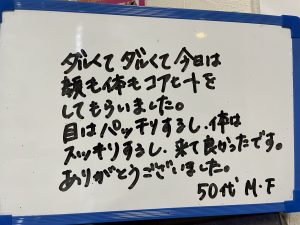 ダルくて ダルくて 今日は
顔も体もコアヒートを
してもらいました。
目はパッチリするし、体は
スッキリするし、来て良かったです。
ありがとうございました。
50代 M・F